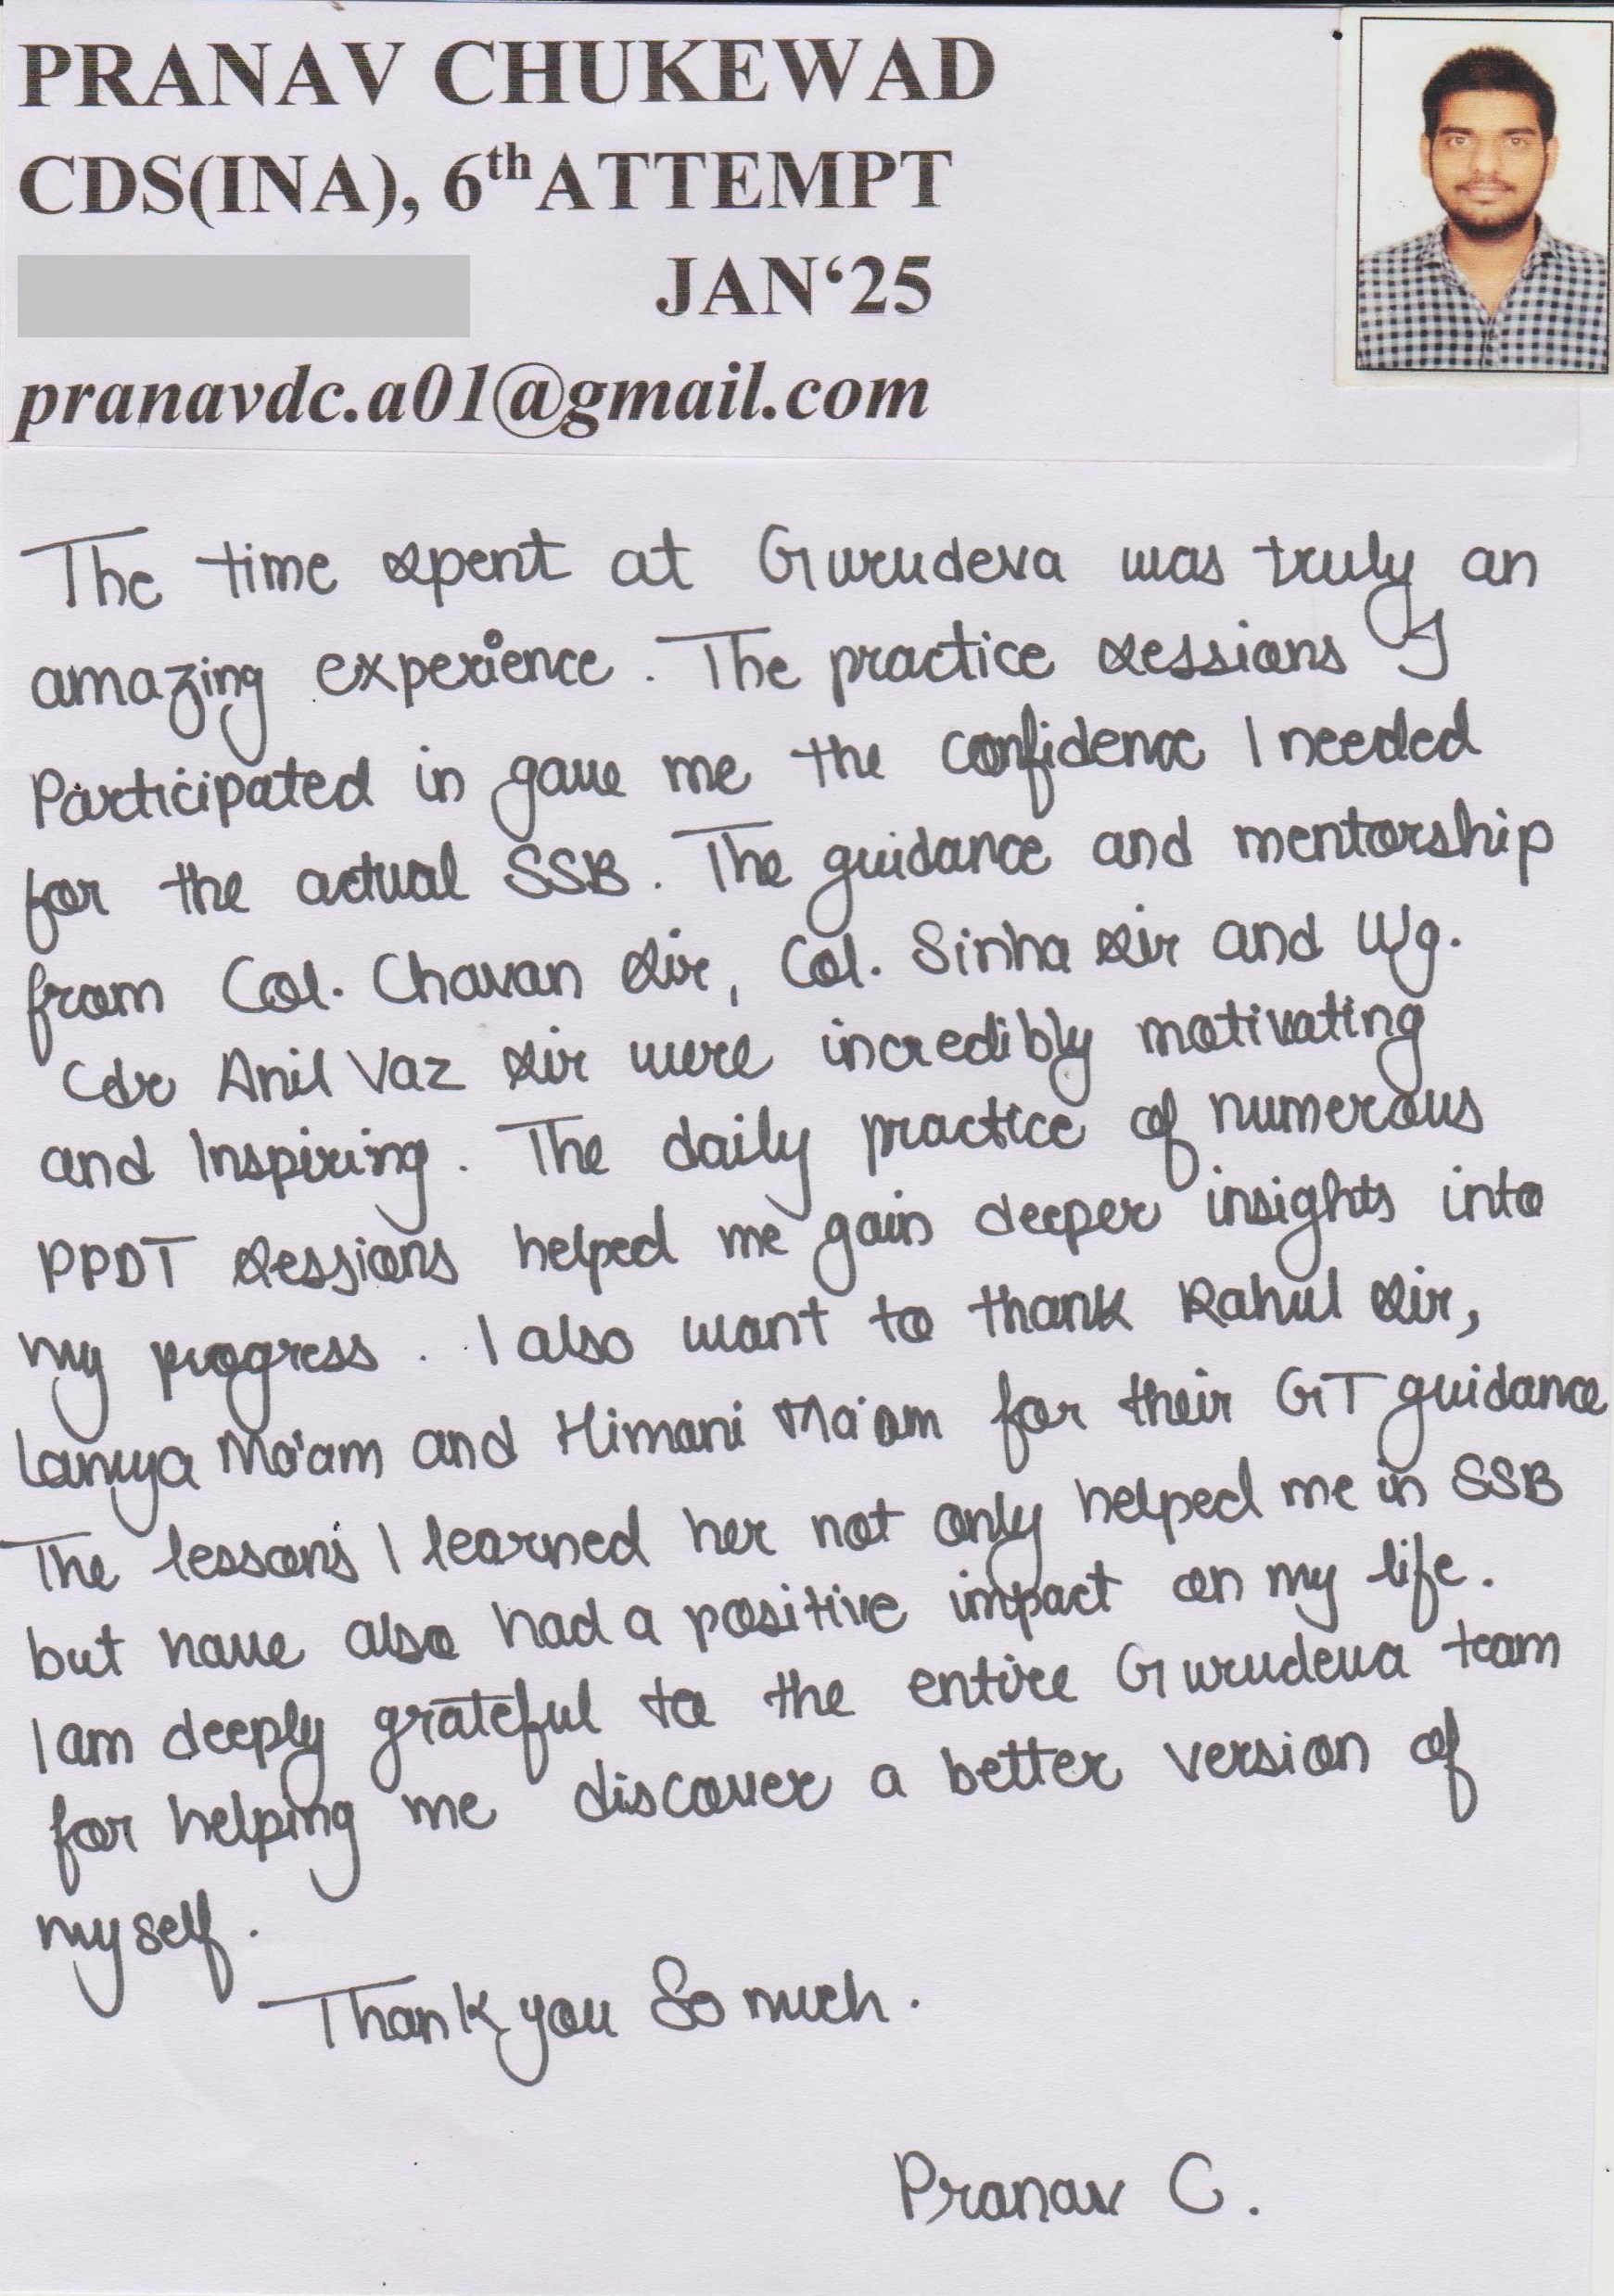 PRANAV CHUKEWAD
CDS(INA), 6th ATTEMPT
JAN‘25
pranavdc.a01@gmail.com
The time spent at Gurudeva was truly an
amazing experience. The practice sessions I
Participated in gave me the confidence I needed
for the actual SSB. The guidance and mentorship
from Col. Chavan sir, Col. Sinha sir and Wg.
Cdr Anil Vaz sir were incredibly motivating
and Inspiring. The daily practice of numerous
PPDT sessions helped me gain deeper insights into
my progress. I also want to thank Rahul sir,
Ma'am and Himani Ma'am for their GT guidance
The lessons I learned her not only helped me in SSB
but have also had a positive impact on my life.
I am deeply grateful to the entire Gurudeva team
for helping me discover a better version of
myself.
Thank you So much.
Pranav C.